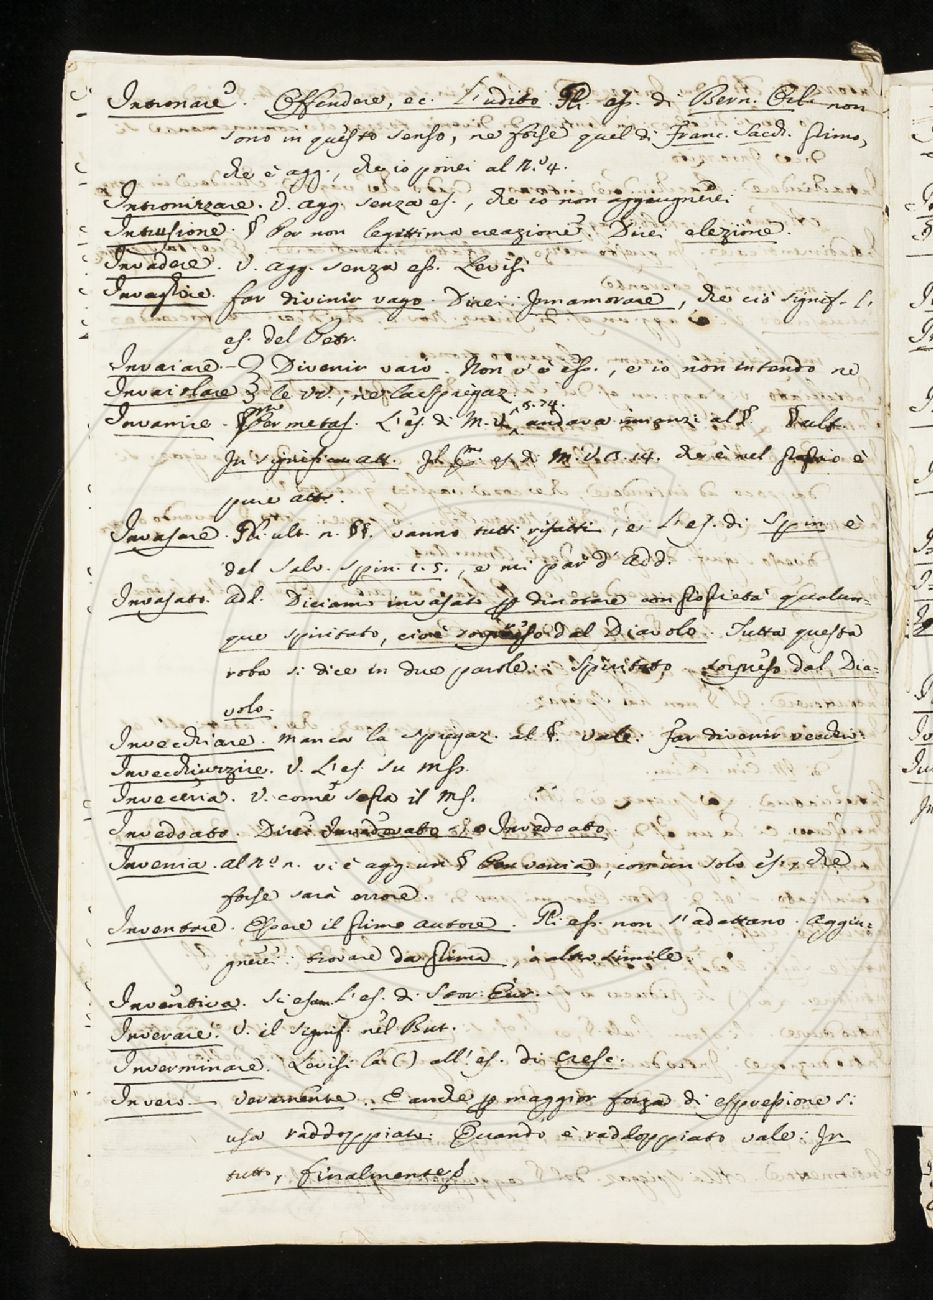 Intronare. Offendere, ec. l'udito. Gli es. di Bern. Orl. non
sono in questo senso, ne forse quel di Franc. Sacch. stimo,
che è agg., che io porrei al n.º 4.
Intronizzare. V. agg. senza es., che io non aggiugnerei
Intrusione. § Per non legittima creazione. Direi elezione.
Invadere. V. agg. senza ess. Levisi
Invaghire. far divinir vago. Direi: Innamorare, che ciò signif. l'
es. del Petr.
Invaiare. Divenir vaio. Non v'è ess., e io non intendo ne
Invaiolare le VV., ne la spiegaz.
Invanire. § Per metaf. L'es. di M. V. 5. 74. andava innanzi al § ult.
In signific. att. Il es. di M. V. 8. 14. che è nel è
pure att.
Invasare. Gli ult. n. §§. vanno tutti rifatti, e l'es. di Spin è
del Salv. Spin. 1. 5., e mi par d'Add.
Invasato. Add. Diciamo invasato p dinotare con istofietà qualun-
que spiritato, cioè soppresso dal Diavolo. Tutta questa
roba si dice in due parole: Spiritato, dal Dia-
volo.
Invecchiare. manca la spiegaz. al §. Vale: far divenir vecchio:
Invecchiuzzire. V. L'es. su Mss.
Invecerìa. V. come sta il MS.
Invedoato. Direi Invedovato, e Invedoato
Invenia. al n.º n. vi è agg. un § Per venia, con un solo es., che
forse sarà errore.
Inventore. Essere il primo autore. Gli ess. non s'adattano. Aggiu-
gnerei: trovare da prima, o altro simile.
Inventiva. Si esam. L'es. di Stor. Eur.
Inverare. V. il signif. nel But.
Inverminare. Levisi la () all'es. di Cresc.
Invero — Veramente. E anche p maggior forza di espressione si
usa raddoppiato. Quando è raddoppiato vale: In
tutto, finalmente